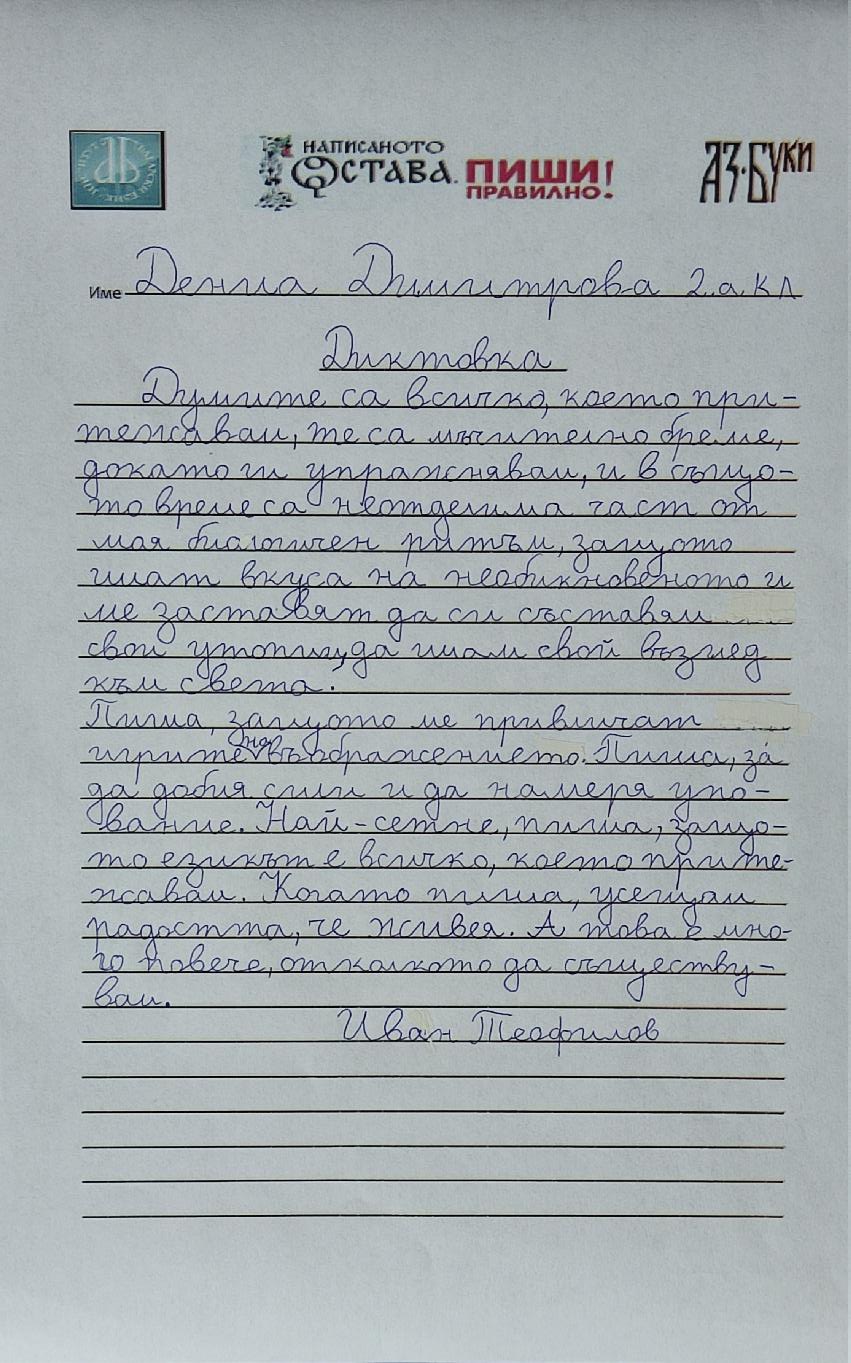 НАПИСАНОТО
ОСТАВА. ПИШИ
ПРАВИЛНО!
АЗ·БУКИ
Име Дениа Димитрова 2.а. кл
Диктовка
Думите са всичко, което при-
тежавам, те са мъчително бреме,
докато ги упражнявам, и в също-
то време са неотделима част от
моя биологичен ритъм, защото
имат вкуса на необикновеното и
ме заставят да си съставям
свои утопии, да имам свой възглед
към света.
Пиша, защото ме привличат
игрите на въображението. Пиша, за
да добия сили и да намеря упо-
вание. Най-сетне, пиша, защо-
то езикът е всичко, което прите-
жавам. Когато пиша, усещам
радостта, че живея. А това е мно-
го повече, отколкото да съществу-
вам.
Иван Теофилов